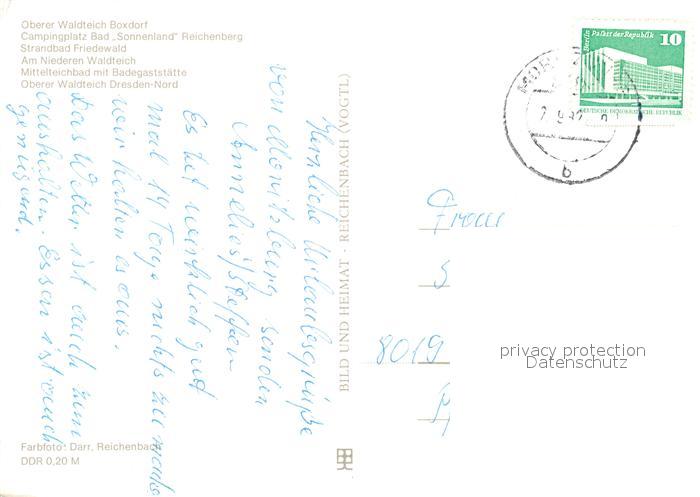 Oberer Waldteich Boxdorf
Campingplatz Bad „Sonnenland" Reichenberg
Strandbad Friedewald
Am Niederen Waldteich
Mittelteichbad mit Badegaststätte
Oberer Waldteich Dresden-Nord
Herzliche Urlaubsgrüße
von Moritzburg senden
Annelies/Steffen
Es tut wirklich gut
mal 14 Tage nichts zu machen
wir halten es aus.
Das Wetter ist auch zum
aushalten. Essen ist auch
genügend.
BILD UND HEIMAT · REICHENBACH (VOGTL)
Berlin Palast der Republik
10
DEUTSCHE DEMOKRATISCHE REPUBLIK
b
Frau
S
8019
privacy protection
Datenschutz
Farbfoto: Darr, Reichenbach
DDR 0,20 M